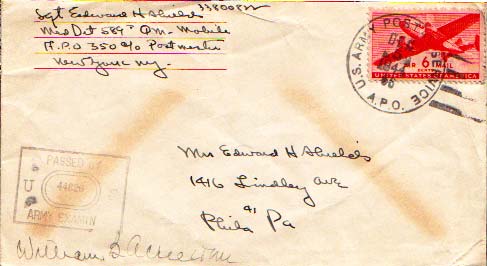 Sgt Edward H Shields 33800822
Med Det 589th Qm. Mobile
A.P.O 350 c/o Postmaster
New York Ny.
U.S. ARMY POSTAL SERVICE
A.P.O.
DEC
1944
AIR 6¢ MAIL
UNITED STATES OF AMERICA
Mrs Edward H Shields
1416 Lindley ave
41
Phila Pa
PASSED BY
U
44626
ARMY EXAMIN
William